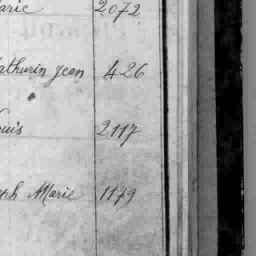 arie 2072
athurin jean 426
ouis 2117
eph Marie 1179